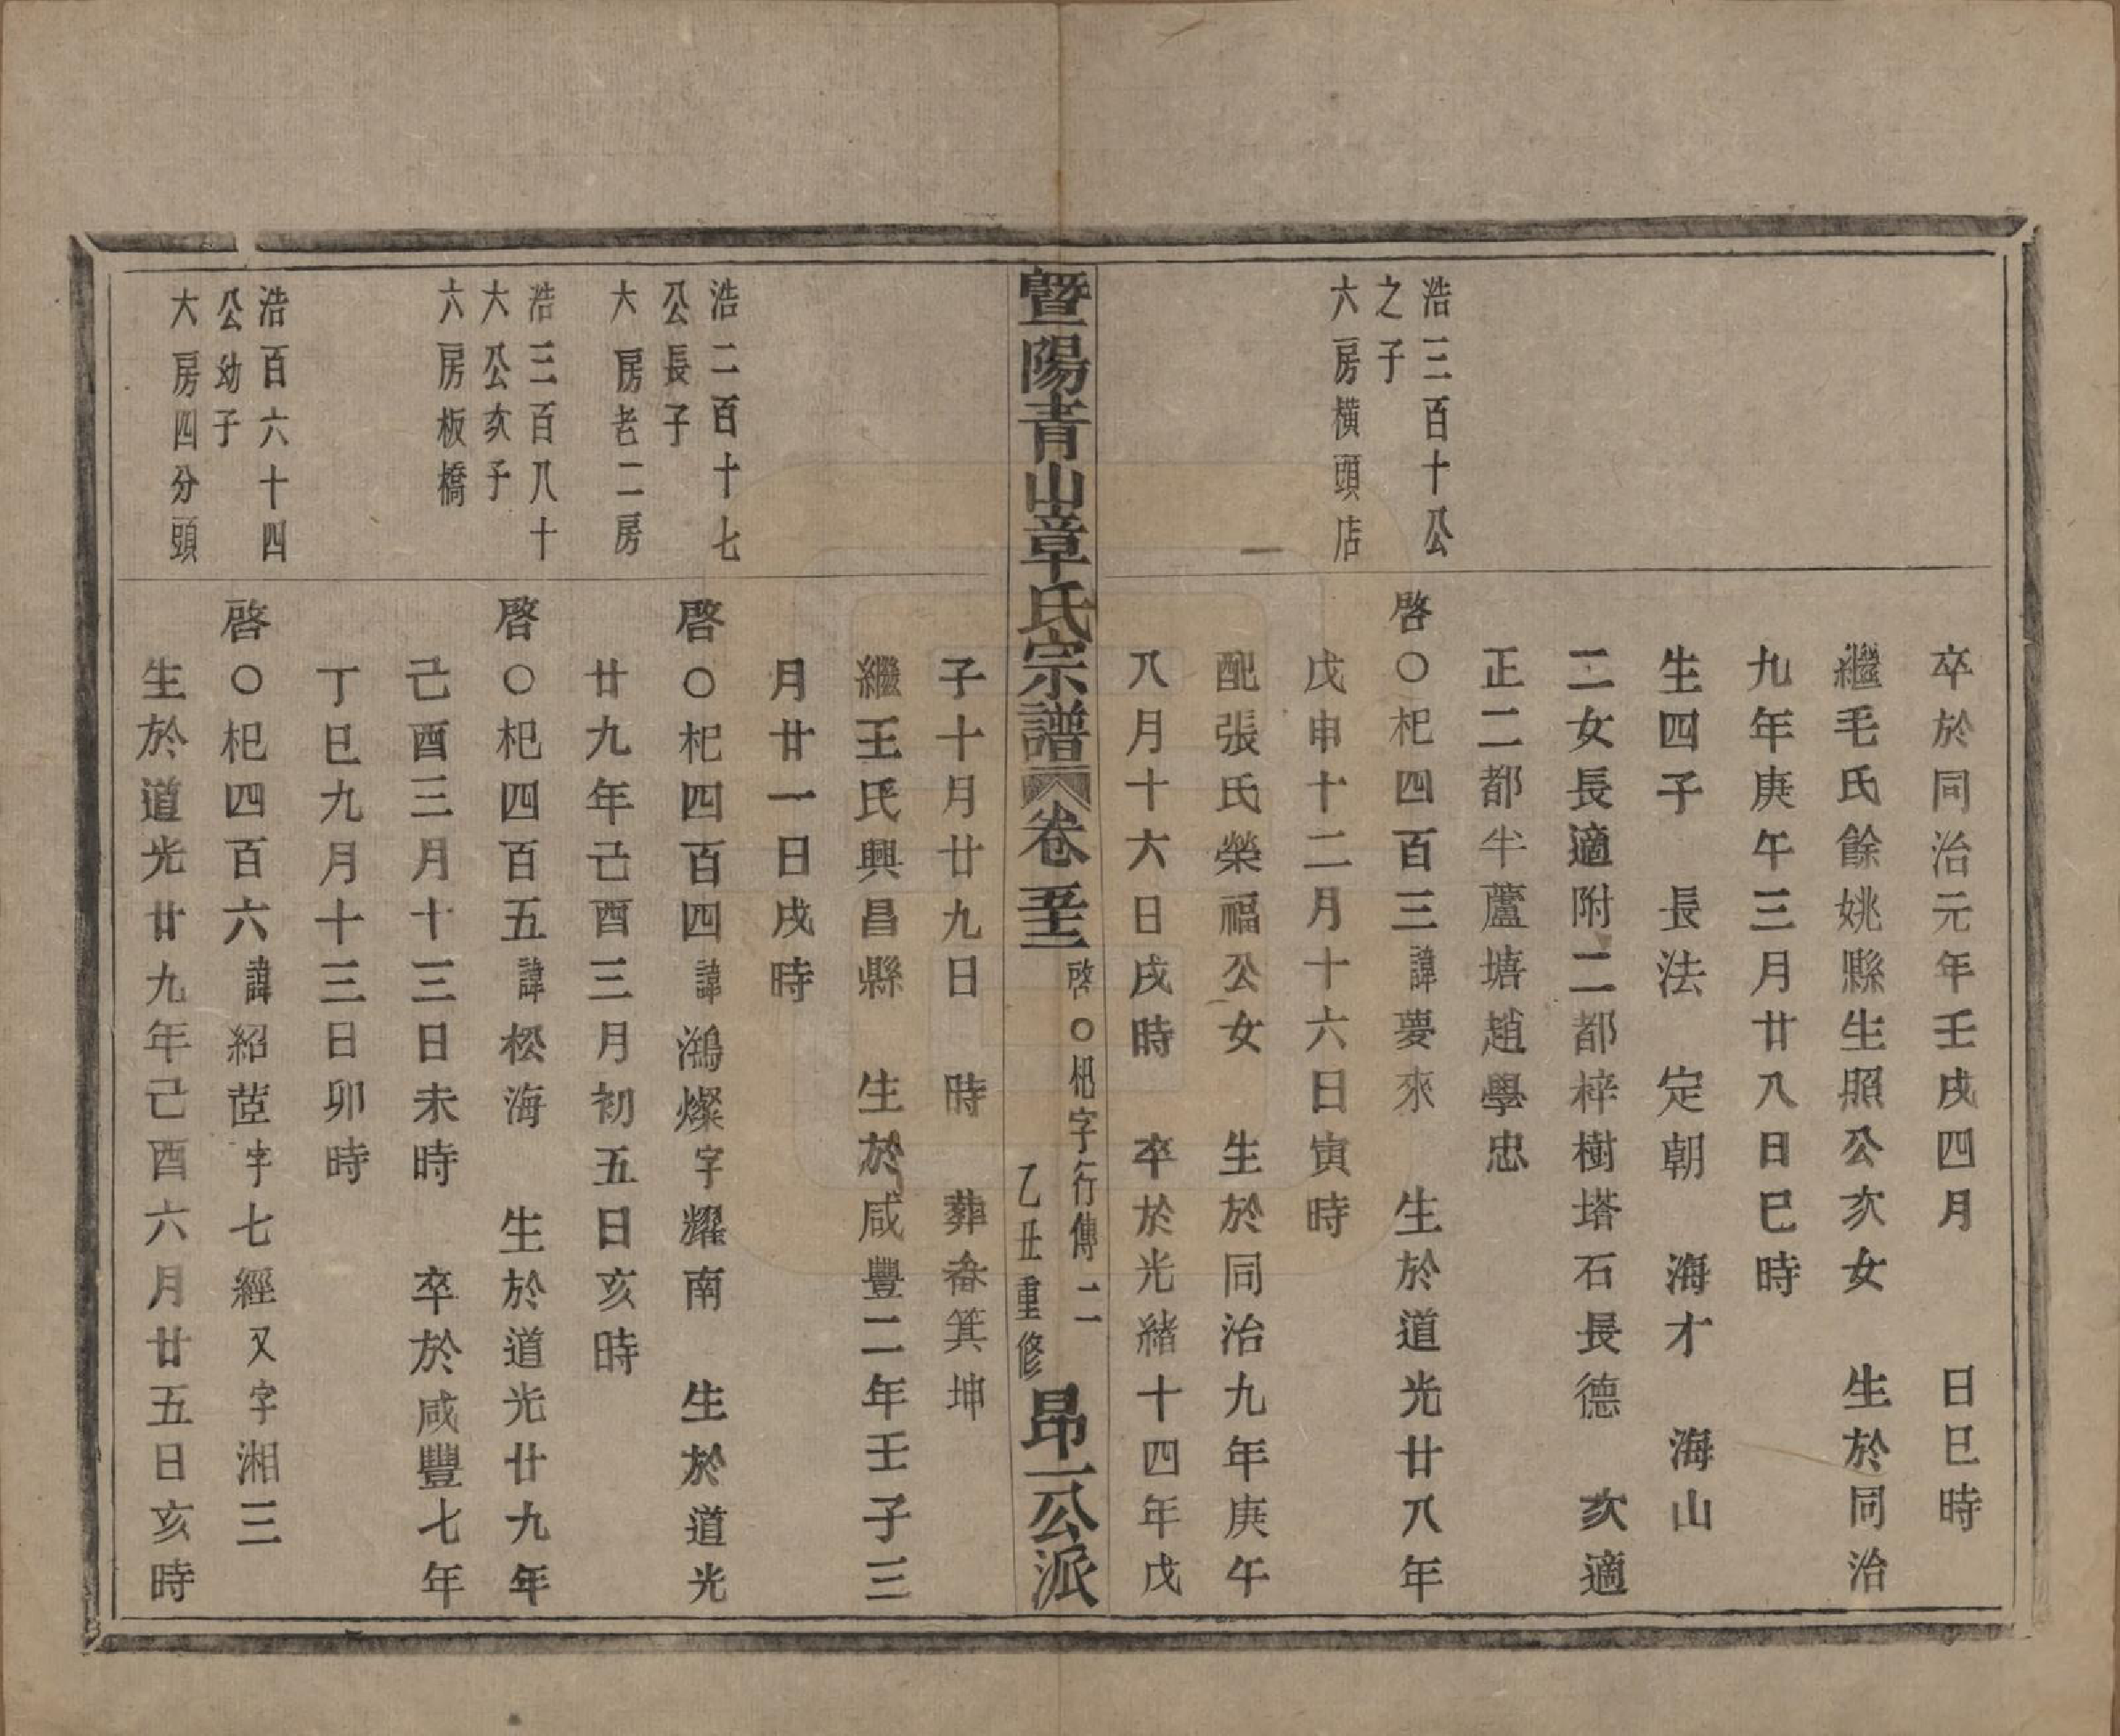 卒於同治元年壬戌四月　日巳時
繼毛氏餘姚縣生照公次女　生於同治
九年庚午三月廿八日巳時
生四子　長法　定朝　海才　海山
二女長適附二都梓樹塔石長德　次適
正二都半蘆塘趙學忠
浩三百十公
之子
六房橫頭店
啓○杞四百三諱夢來　生於道光廿八年
戊申十二月十六日寅時
配張氏榮福公女　生於同治九年庚午
八月十六日戌時　卒於光緒十四年戊
暨陽青山章氏宗譜　卷五十二　啓○杞字行傳　二　乙丑重修　昂一公派
子十月廿九日　時　葬夆箕坤
繼王氏興昌縣　生於咸豐二年壬子三
月廿一日戌時
浩二百十七
公長子
大房老二房
啓○杞四百四諱鴻燦字耀南　生於道光
廿九年己酉三月初五日亥時
浩三百八十
六公次子
六房板橋
啓○杞四百五諱松海　生於道光廿九年
己酉三月十三日未時　卒於咸豐七年
丁巳九月十三日卯時
浩百六十四
公幼子
大房四分頭
啓○杞四百六諱紹茞字七經又字湘三
生於道光廿九年己酉六月廿五日亥時